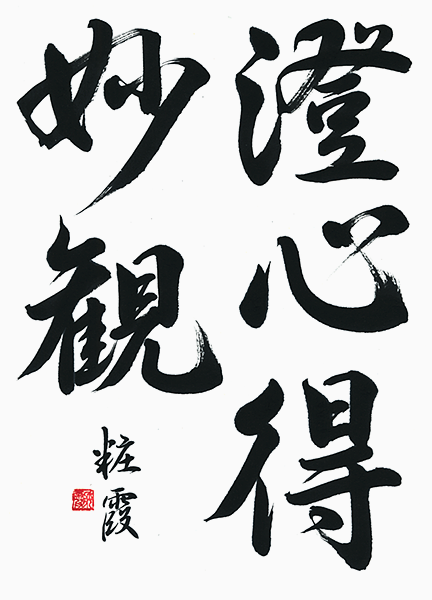 澄心得
妙観
粧霞